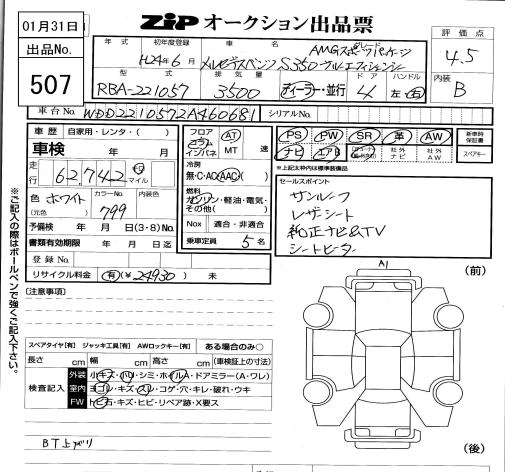 01月31日
出品No.
507
ZIP オークション出品票
年式 初年度登録 車名 グレード
H24年6月 メルセデスベンツ S350 ブルーエフィシェンシー
AMGスポーツパッケージ
評価点
4.5
型式 排気量 ドア ハンドル
RBA-221057 3500 ディーラー・並行 4 左・右
内装
B
車台No. WDD2210572A460681 シリアルNo.
車歴 自家用・レンタ・( )
車検 年 月
走行 62,742 km マイル
色 ホワイト (元色) カラーNo. 799 内装色
予備検 年 月 日(3・8)No.
書類有効期限 年 月 日迄
登録No.
リサイクル料金 有(¥24930) 未
フロア コラム インパネ AT MT 速
冷房
無・C・AC(AAC)
燃料
ガソリン・軽油・電気・その他( )
Nox 適合・非適合
乗車定員 5名
PS PW SR 革 AW
ナビ エアB 社外ナビ 社外AW
新車時保証書
スペアキー
*上記太枠内は標準装備品
セールスポイント
サンルーフ
レザーシート
純正ナビ&TV
シートヒーター
※ご記入の際はボールペンで強くご記入下さい。
(注意事項)
A1
(前)
(後)
スペアタイヤ[有] ジャッキ工具[有] AWロックキー[有] ある場合のみ○
長さ cm 幅 cm 高さ cm (車検証上の寸法)
検査記入
外装 小キズ・凹・シミ・ホイルA・ドアミラー(A・ワレ)
室内 ヨゴレ・キズ・スレ・コゲ・穴・キレ・破れ・ウキ
FW トビ石・キズ・ヒビ・リペア跡・X要ス
BT上がり